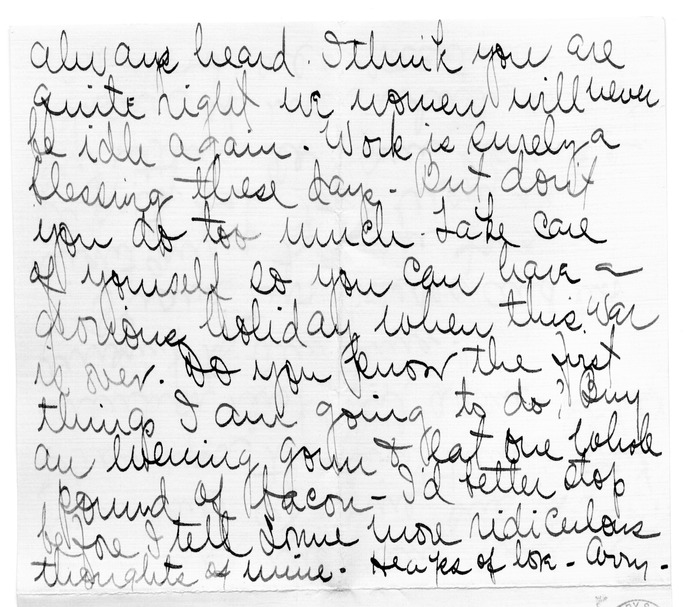 always heard. I think you are
quite right we women will never
be idle again. Work is surely a
blessing these days. But don't
you do too much. Take care
of yourself so you can have a
glorious holiday when this war
is over. Do you know the first
things I am going to do? Buy
an evening gown & eat one whole
pound of bacon - I'd better stop
before I tell some more ridiculous
thoughts of mine. Heaps of love -